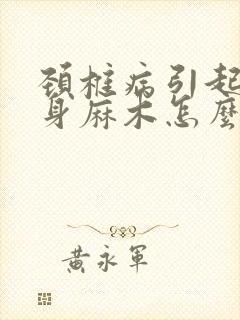 頚椎病引起
身麻木怎麼
黃永軍